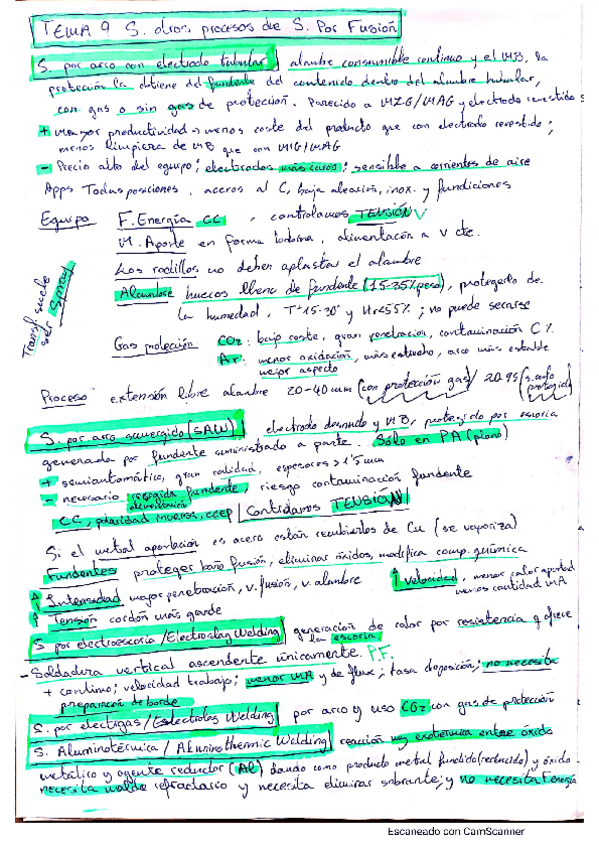 TEMA 9 S. otros procesos de S. Por Fusión
S. por arco con electrodo tubular) alambre consumible continuo y el MB, la
protección la obtiene del fundente del contenido dentro del alambre tubular,
con gas o sin gas de protección. Parecido a MIG/MAG y electrodo revestido
+ mayor productividad, menos coste del producto que con electrodo revestido;
menos limpieza de MB que con MIG/MAG
- Precio alto del equipo; electrodos más caros; sensible a corrientes de aire
Apps Todas posiciones, aceros al C, baja aleación, inox. y fundiciones
Equipo F. Energía CC, controlamos TENSIÓN V
M. Aporte en forma bobina, alimentación a v cte.
Los rodillos no deben aplastar el alambre
Alambre huecos llenos de fundente (15-35% peso), protegerlo de
la humedad, Tª 15-30° y Hr<55%; no puede secarse
Transf. suele ser spray
Gas protección CO2: bajo coste, gran penetración, contaminación C%
Ar: menor oxidación, más estrecho, arco más estable
mejor aspecto
Proceso extensión libre alambre 20-40 mm (con protección gas) / 20-95 (s. auto protegido)
S. por arco sumergido (SAW) electrodo desnudo y MB, protegido por escoria
generada por fundente suministrado a parte. Sólo en PA (plano)
+ semiautomática, gran calidad, espesores > 1'5mm
- necesario recogida fundente, riesgo contaminación fundente
CC, polaridad inversa, ccep | Controlamos TENSIÓN
Si el metal aportación es acero están recubiertos de Cu (se vaporiza)
Fundentes proteger baño fusión, eliminar óxidos, modifica comp. química
↑ Intensidad mayor penetración, v. fusión, v. alambre ↑ velocidad, menor calor aportado
menos cantidad MA
↑ Tensión cordón más
S por electroescoria /Electroslag Welding) generación de calor por resistencia q ofrece
la escoria
- Soldadura vertical ascendente únicamente. P.F.
+ continuo; velocidad trabajo; menor MA y de flux; tasa deposición; no necesita
preparación de borde
S. por electrogas / Welding) por arco y uso CO2 con gas de protección
S. Aluminotérmica / Aluminothermic Welding) reacción muy exotérmica entre óxido
metálico y agente reductor (Al) dando como producto metal fundido (reducido) y óxido -
necesita molde refractario y necesita eliminar sobrante; y no necesita F. energía
Escaneado con CamScanner